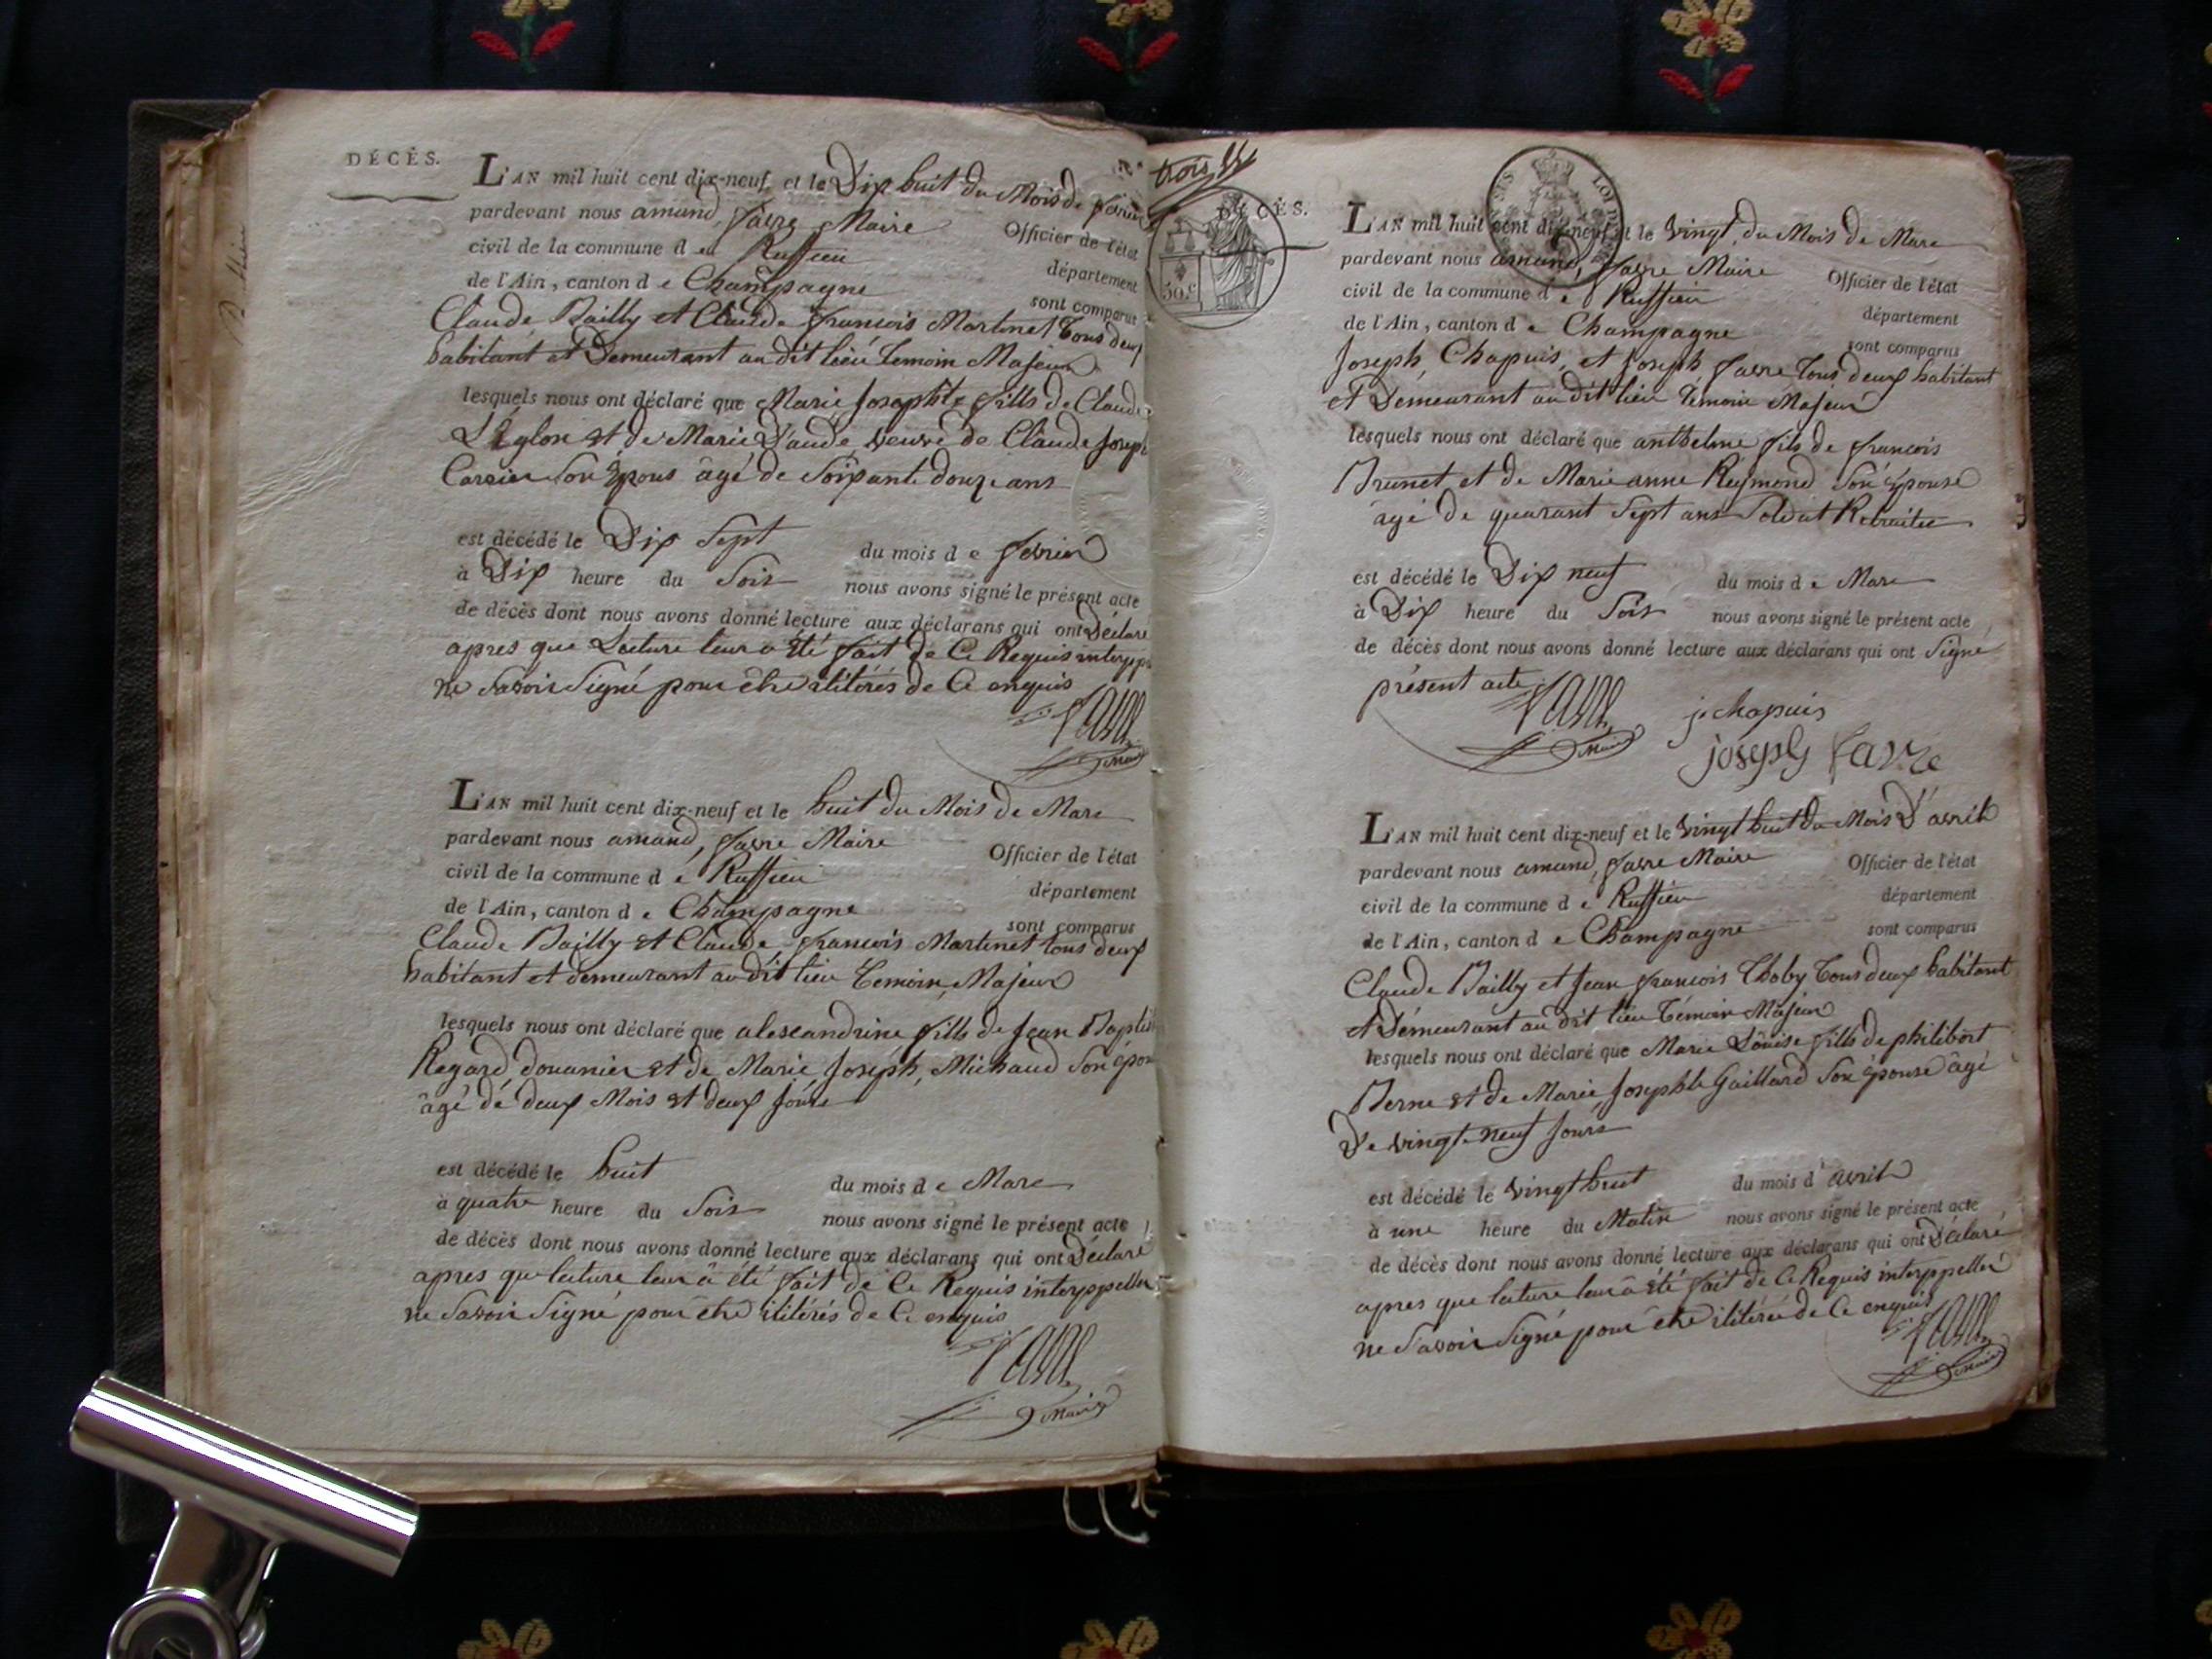 DÉCÈS.
L'AN mil huit cent dix-neuf et le Dix huit du Mois de fevrier
pardevant nous amand, favre Maire Officier de l'état
civil de la commune d eu Ruffieu département
de l'Ain, canton d e Champagne sont comparus
Claude Bailly et Claude françois Martinet Tous deux
habitant et Demeurant au dit lieu Temoin Majeur
lesquels nous ont déclaré que Marie Josephte fille de Claude
et de Marie veuve de Claude Joseph
son Epous âgé de Soixante douze ans
est décédé le Dix Sept du mois d e fevrier
à Dix heure du Soir nous avons signé le présent acte
de décès dont nous avons donné lecture aux déclarans qui ont Déclaré
apres que Lecture leur a Eté fait de Ce Requis
ne Savoir Signé pour être ilitérés de Ce enquis
favre
Maire
L'AN mil huit cent dix-neuf et le huit du Mois de Mars
pardevant nous amand, favre Maire Officier de l'état
civil de la commune d e Ruffieu département
de l'Ain, canton d e Champagne sont comparus
Claude Bailly et Claude françois Martinet tous deux
habitant et demeurant au dit lieu Temoin Majeur
lesquels nous ont déclaré que alexandrine fille de Jean Baptis
Regard douanier et de Marie Joseph, Michaud Son épou
âgé de deux Mois et deux Jours
est décédé le huit du mois d e Mars
à quatre heure du Soir nous avons signé le présent acte
de décès dont nous avons donné lecture aux déclarans qui ont Déclaré
apres que lecture leur à été fait de Ce Requis interppeller
ne Savoir Signé pour être ilitérés de Ce enquis
favre
Maire
trois
DÉCÈS.
50.c
LOI
L'AN mil huit cent dix-neuf et le vingt, du Mois de Mars
pardevant nous amand, favre Maire Officier de l'état
civil de la commune d e Ruffieu département
de l'Ain, canton d e Champagne sont comparus
Joseph, Chapuis, et Joseph favre Tous deux habitant
et Demeurant au dit lieu Témoin Majeur
lesquels nous ont déclaré que anthelme fils de francois
Brunet et de Marie anne Reymond Son épouse
âgé de quarant Sept ans Soldat Retraitée
est décédé le Dix neuf du mois d e Mars
à Dix heure du Soir nous avons signé le présent acte
de décès dont nous avons donné lecture aux déclarans qui ont Signé
présent acte
favre
Maire
j. chapuis
joseph favre
L'AN mil huit cent dix-neuf et le vingt huit du Mois D'avril
pardevant nous amand, favre Maire Officier de l'état
civil de la commune d e Ruffieu département
de l'Ain, canton d e Champagne sont comparus
Claude Bailly et Jean francois Thoby Tous deux habitant
et Démeurant au dit lieu Témoin Majeur
lesquels nous ont déclaré que Marie Louise fille de philibert
Berne et de Marie Josephte Gaillard Son épouse âgé
De vingt neuf Jours
est décédé le vingt huit du mois d' avril
à une heure du Matin nous avons signé le présent acte
de décès dont nous avons donné lecture aux déclarans qui ont Déclaré
apres que lecture leur a été fait de Ce Requis interppeller
ne Savoir Signé pour être ilitérée de Ce enquis
favre
Maire